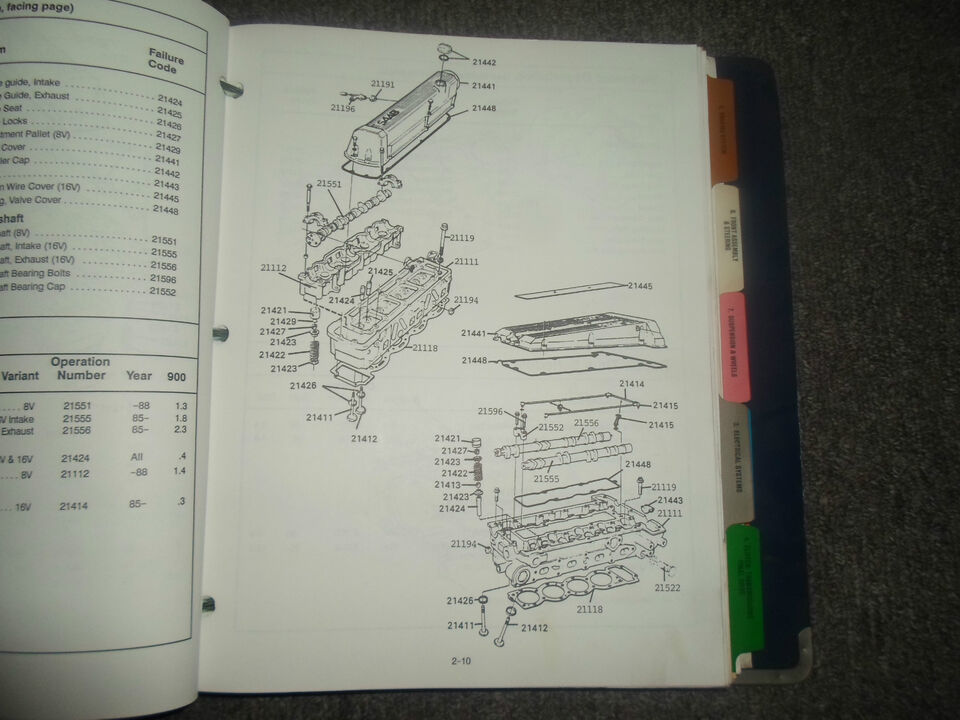 , facing page)
Failure
Code
guide, Intake 21424
Guide, Exhaust 21425
Seat 21426
Locks 21427
tment Pallet (8V) 21429
Cover 21441
ler Cap 21442
n Wire Cover (16V) 21443
21445
g, Valve Cover 21448
shaft
aft (8V) 21551
aft, Intake (16V) 21555
aft, Exhaust (16V) 21556
aft Bearing Bolts 21596
aft Bearing Cap 21552
Operation
Variant Number Year 900
8V 21551 -88 1.3
V Intake 21555 85- 1.8
Exhaust 21556 85- 2.3
V & 16V 21424 All .4
8V 21112 -88 1.4
16V 21414 85- .3
21442
21191
21441
21196
21448
21551
21119
21112
21425
21111
21424
21445
21194
21421
21429
21427
21423
21422
21423
21118
21441
21448
21426
21414
21415
21596
21411
21552
21556
21415
21412
21421
21427
21423
21422
21413
21423
21424
21555
21448
21119
21443
21111
21194
21522
21426
21118
21411
21412
2-10
6. FRONT ASSEMBLY
& STEERING
7. SUSPENSION & WHEELS
3. ELECTRICAL SYSTEMS